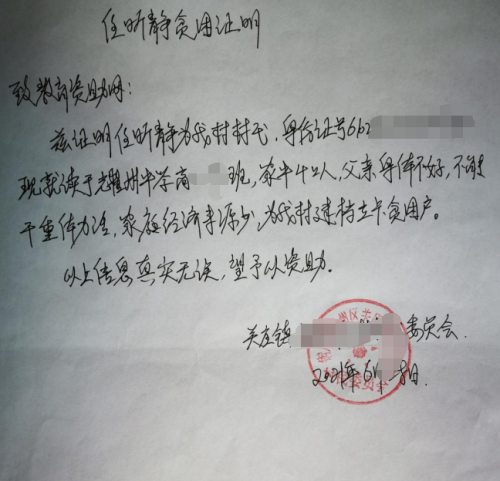 任昕静贫困证明
致教育资助网：
兹证明任昕静为我村村民，身份证号612
现就读于耀州中学高 班，家中4口人，父亲身体不好，不能
干重体力活，家庭经济来源少，为我村建档立卡贫困户。
以上信息真实无误，望予以资助。
关庄镇 委员会
2021年6月 日